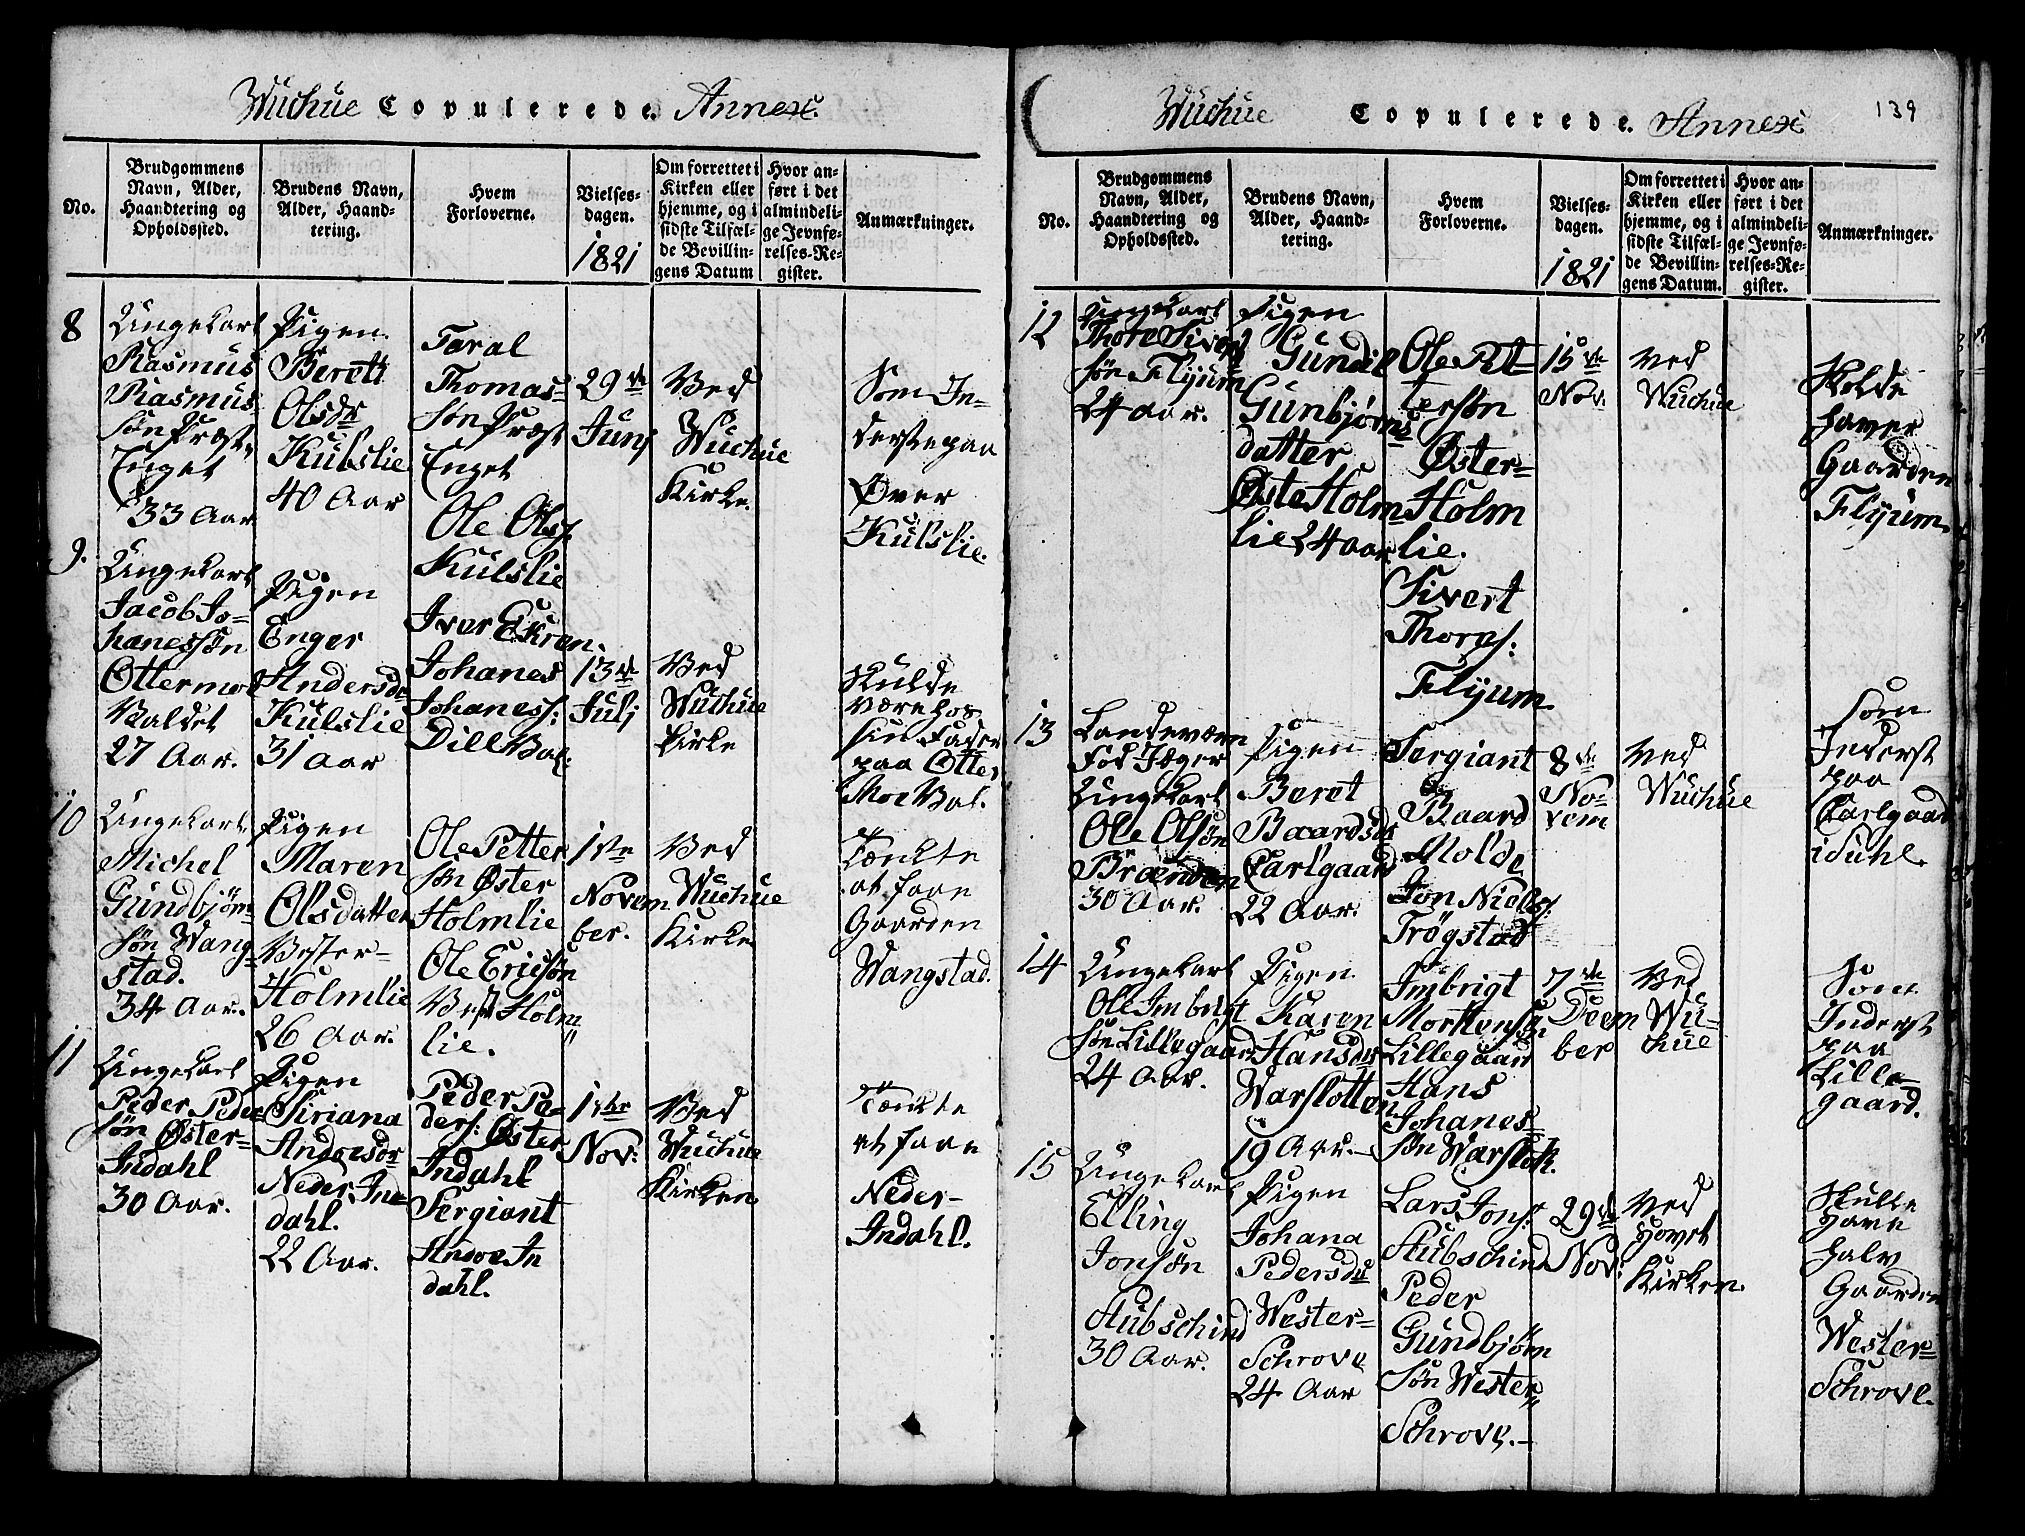 Wuchue Copulerede. Annex.
No.
Brudgommens
Navn, Alder,
Haandtering og
Opholdssted.
Brudens Navn,
Alder, Haand-
tering.
Hvem
Forloverne.
Vielses-
dagen.
1821
Om forrettet i
Kirken eller
hjemme, og i
sidste Tilfæl-
de Bevillin-
gens Datum
Hvor an-
ført i det
almindeli-
ge Jevnfø-
relses-Re-
gister.
Anmærkninger.
8
Ungekarl
Rasmus
Rasmus
søn Præst
Enget
33 Aar
Pigen
Berett
Olsdr
Kulslie
40 Aar
Taral
Thomas-
søn Præst
Enget
Ole Ols.
Kulslie
29de
Junj
Ved
Wuchue
Kirke.
Som In-
derste paa
Øver
Kulslie.
9.
Ungekarl
Jacob Jo-
hanessøn
Ottermoe
Baldet
27 Aar.
Pigen
Enger
Andersdr
Kulslie
31 aar
Iver Ekren.
Johanes
Johaness:
Dill Bal:
13de
Julj
Ved
Wuchue
Kirke
Skulde
være hos
sin Fader
paa Otter
Moe Bal.
10
Ungekarl
Michel
Gundbjørn
søn Wang-
stad.
34 Aar.
Pigen
Maren
Olsdatter
Vester-
Holmlie
26 Aar.
Ole Petter
søn Øster
Holmlie
Ole Ericsøn
Vest Holm
lie.
1ste
Novem
ber.
Ved
Wuchue
Kirke
Tænkte
at faae
Gaarden
Wangstad.
11
Ungekarl
Peder Peder
søn Øster-
Indahl
30 Aar.
Pigen
Siriana
Andersdr
Neder In
dahl.
22 Aar.
Peder Pe-
ders: Øster
Indahl
Sergiant
Andor In
dahl.
1ster
Nov:
Ved
Wuchue
Kirken
Tænkte
at faae
Neder-
Indahl.
Wuchue Copulerede. Annex
139
No.
Brudgommens
Navn, Alder,
Haandtering og
Opholdssted.
Brudens Navn,
Alder, Haand-
tering.
Hvem
Forloverne.
Vielses-
dagen.
1821
Om forrettet i
Kirken eller
hjemme, og i
sidste Tilfæl-
de Bevillin-
gens Datum.
Hvor an-
ført i det
almindeli-
ge Jevnfø-
relses-Re-
gister.
Anmærkninger.
12
Ungekarl
Thore Sivert
søn Flyum
24 aar.
Pigen
Gundil
Gunbjørns
datter
Øste Holm
lie 24 aar
Ole Pet-
tersøn
Øster-
Holm
lie.
Sivert
Thores:
Flyum
15de
Nov.
Ved
Wuchue
Skolde
haver
Gaarden
Flyum.
13
Landeværn
Fod Jæger
Ungekarl
Ole Olsøn
Brænden
30 Aar.
Pigen
Beret
Baardsdr
Carlgaard
22 Aar.
Sergiant
Baard
Molde
Jon Niels:
Trøgstad
8de
No-
vem
Ved
Wuchue
Som
Inderst
paa
Carlgaard
i Buhl.
14
Ungekarl
Ole Imbrigt
søn Lillegaard
24 Aar.
Pigen
Karen
Hansdr
Warslotten
19 Aar.
Imbrigt
Mortensøn
Lillegaard
Hans
Johanes-
søn Warslot.
7de
Decem
ber
Ved
Wu-
chue
Som
Inderst
paa
Lille-
gaard.
15
Ungekarl
Elling
Jonsøn
Stubschind
30 Aar.
Pigen
Johana
Pedersdr
Wester-
Schrove
24 Aar
Lars Jons:
Stubschind
Peder
Gundbjørn
Søn Wester
Schrove.
29de
Nov:
Ved
Hovet
Kirken.
Skulle
have
halv
Gaarden
Wester-
Schrove.